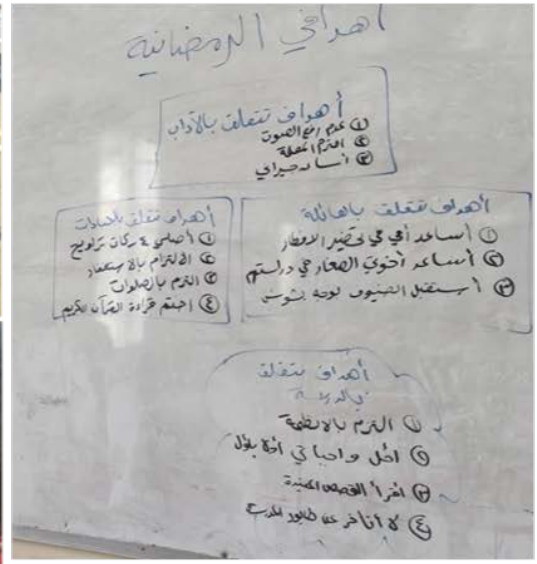 أهدافي الرمضانية
أهداف تتعلق بالآداب
① عدم رفع الصوت
② التزم
③ أساعد جيراني
أهداف تتعلق بالعائلة
① أساعد أمي في تحضير الافطار
② أساعد أخوتي الصغار في دراستهم
③ أستقبل الضيوف بوجه بشوش
أهداف تتعلق بالعبادات
① أصلي ٤ ركعات تراويح
② الالتزام بالاستغفار
③ التزم بالصلوات
④ اختم قراءة القرآن الكريم
أهداف تتعلق
بالمدرسة
① التزم بالانظمة
② احل واجباتي أولا بأول
③ اقرأ القصص المفيدة
④ لا أتأخر عن طابور المدرسة